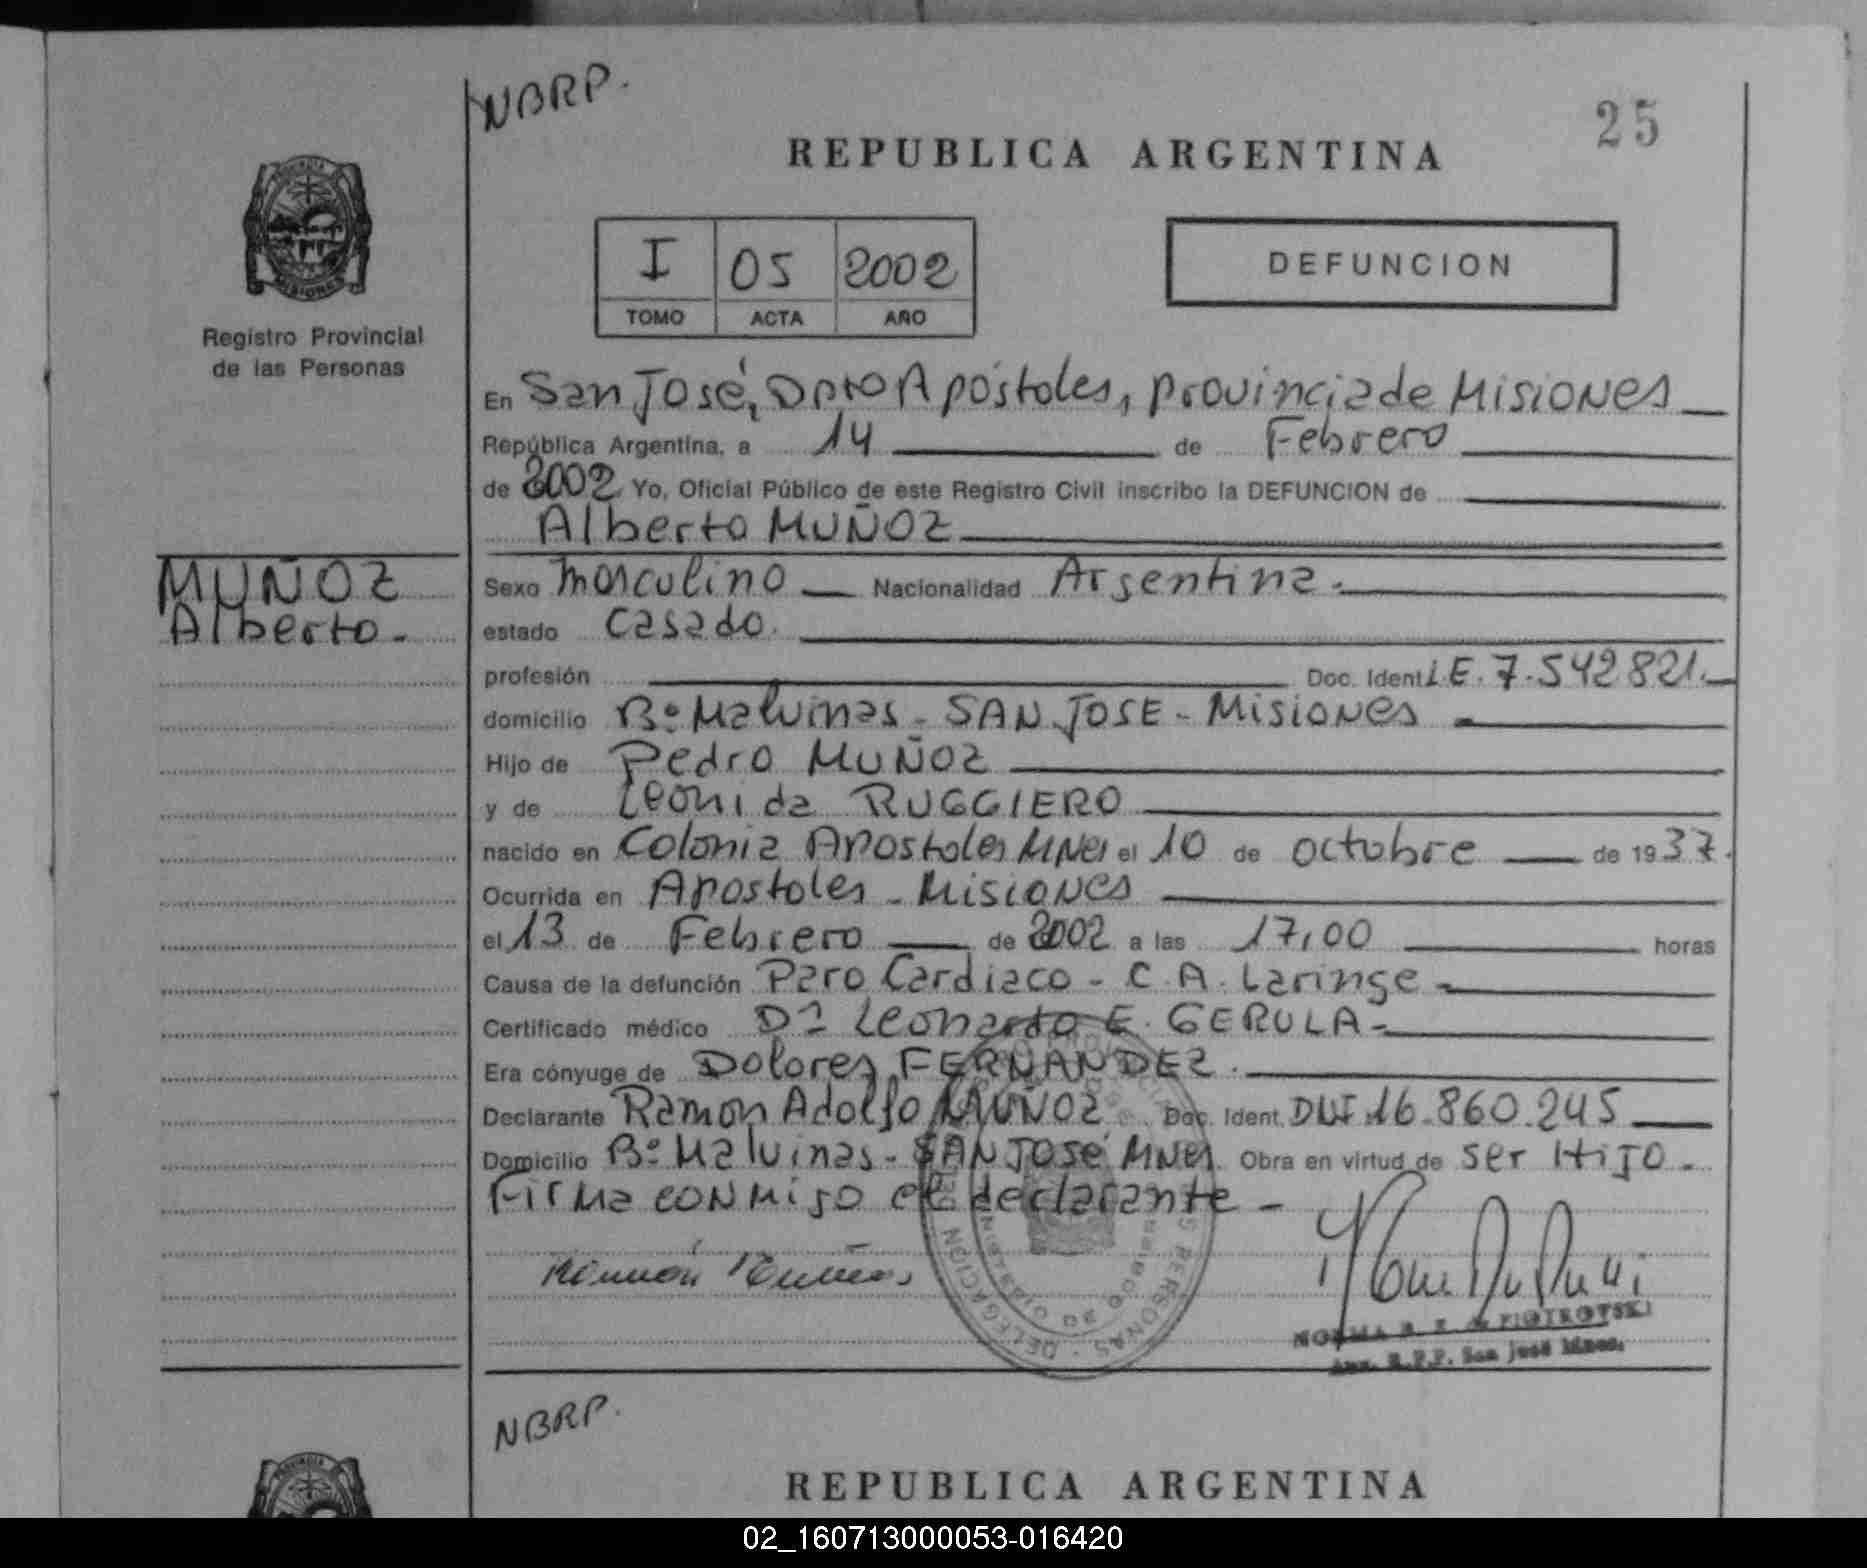 NBRP.
25
REPUBLICA ARGENTINA
PROVINCIA
MISIONES
Registro Provincial
de las Personas
I 05 2002
TOMO ACTA AÑO
DEFUNCION
En San José, Dpto Apóstoles, provincia de Misiones
República Argentina, a 14 de Febrero
de 2002 Yo, Oficial Público de este Registro Civil inscribo la DEFUNCION de
Alberto MUÑOZ
MUÑOZ
Alberto.
Sexo masculino Nacionalidad Argentina.
estado casado.
profesión Doc. Ident L.E. 7.542821.
domicilio Bº Malvinas - SAN JOSE - Misiones
Hijo de Pedro MUÑOZ
y de Leonida RUGGIERO
nacido en Colonia Apostoles MNes el 10 de octubre de 1937.
Ocurrida en Apostoles - Misiones
el 13 de Febrero de 2002 a las 17,00 horas
Causa de la defunción Paro Cardiaco - C.A. Laringe -
Certificado médico Dr Leonardo E. GERULA -
Era cónyuge de Dolores FERNANDEZ.
Declarante Ramon Adolfo MUÑOZ Doc. Ident. DNI 16.860.245
Domicilio Bº Malvinas - SAN JOSÉ MNes. Obra en virtud de ser Hijo.
Firma conmigo el declarante -
Ramón Muñoz
DELEGACION
PERSONAS
NORMA B. Z. de PIOTROVSKI
R.P.P. San José Mnes.
NBRP.
PROVINCIA
REPUBLICA ARGENTINA
02_160713000053-016420